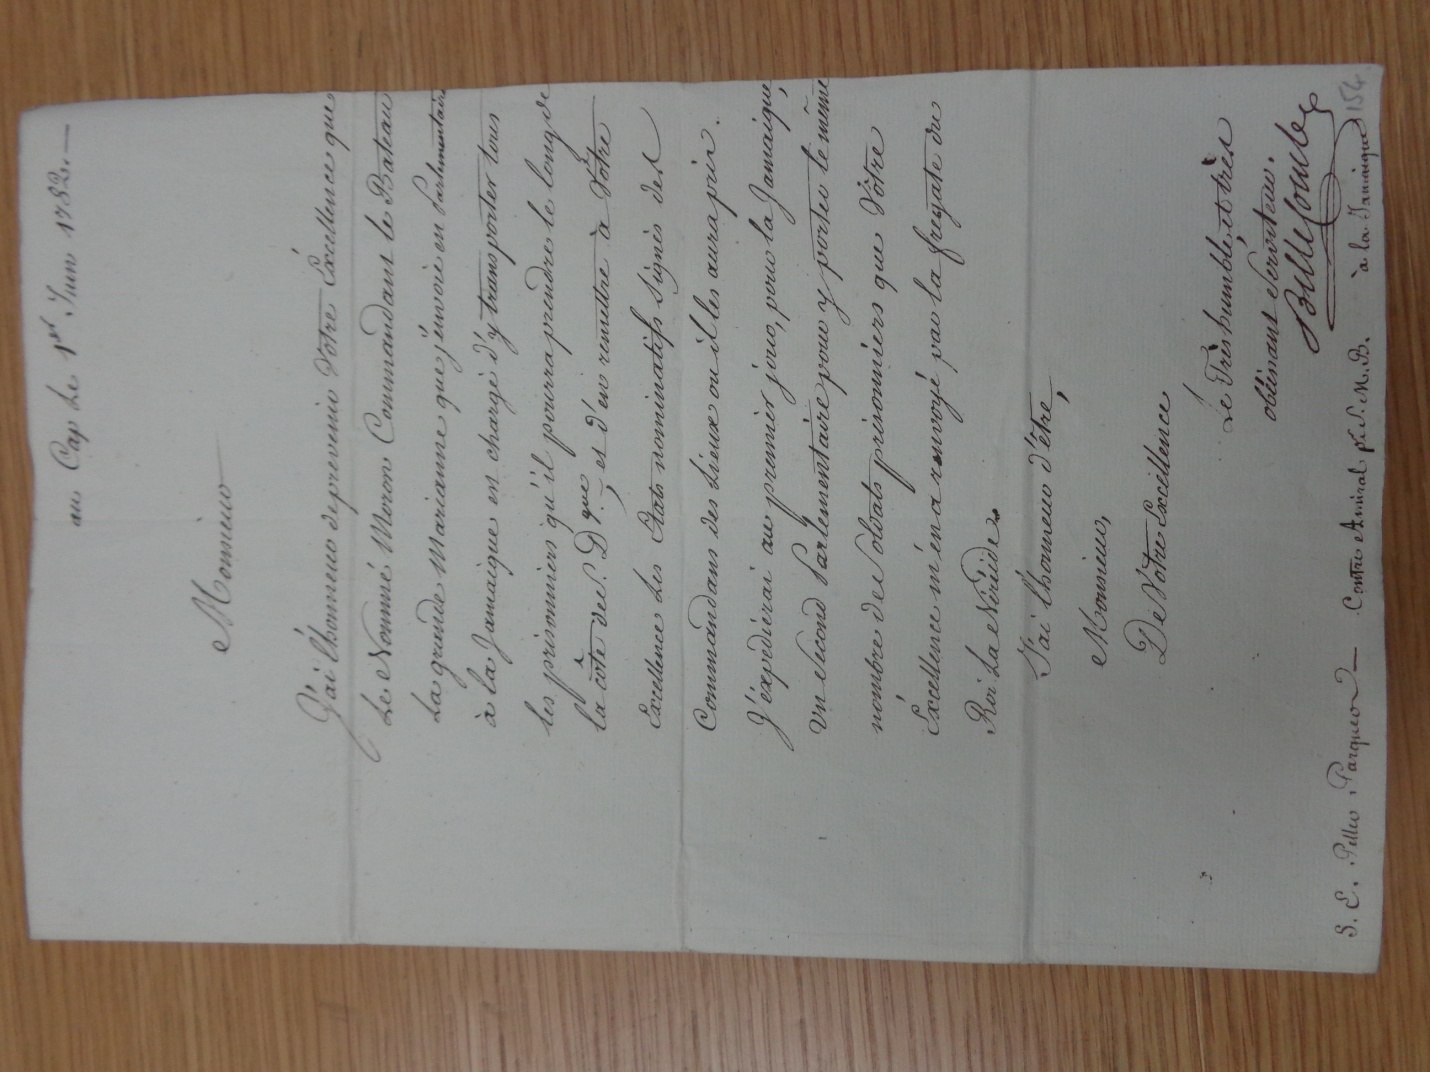 au Cap Le 1er. Juin 1782. —
Monsieur
J'ai l'honneur de prevenir Vôtre Excellence que
Le Nommé Moron Commandant le Bateau
La grande Marianne que j'envoie en Parlementaire
à la Jamaïque est chargé d'y transporter tous
les prisonniers qu'il pourra prendre le long de
la côte de St. Dque., et d'en remettre à Vôtre
Excellence Les Etats nominatifs signés des
Commandans des Lieux où il les aura pris.
J'éxpédierai au premier jour, pour la Jamaïque,
un Second Parlementaire pour y porter le même
nombre de Soldats prisonniers que Vôtre
Excellence m'en a renvoyé par la fregate du
Roi La Néréïde.
J'ai l'honneur d'être,
Monsieur,
De Vôtre Excéllence
Le Très humble, et très
obéissant Serviteur.
Bellecombe
S. E. Peter Parquer — Contre Amiral pr. S. M. B. à la Jamaïque
154